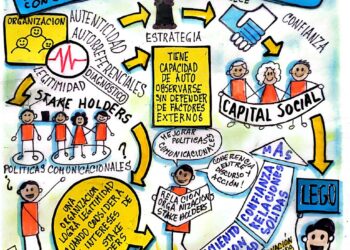 CON
ORGANIZACION
AUTENTICIDAD
AUTORREFERENCIALES
LEGITIMIDAD
DIAGNOSTICO
ESTRATEGIA
CONFIANZA
TIENE
CAPACIDAD
DE AUTO
OBSERVARSE
SIN DEFENDER
DE FACTORES
EXTERNOS
STAKE HOLDERS
CAPITAL SOCIAL
POLITICAS COMUNICACIONALES?
MEJORAR
POLITICAS
COMUNICACIONALES
COHERENCIA
ENTRE
DISCURSO
Y
ACCION!
MÁS
CONFIANZA
RELACIONES
SOLIDAS
LEGO
UNA
ORGANIZACION
LOGRA LEGITIMIDAD
CUANDO CONSIDERA
INTERESES
DE
STAKE
RELACION
ORGANIZACION
STAKE HOLDERS